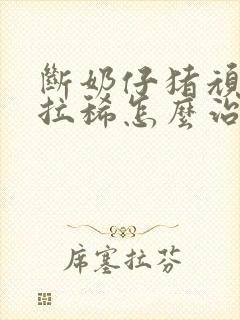 斷奶仔猪頑
拉稀怎麼治
席塞拉芬